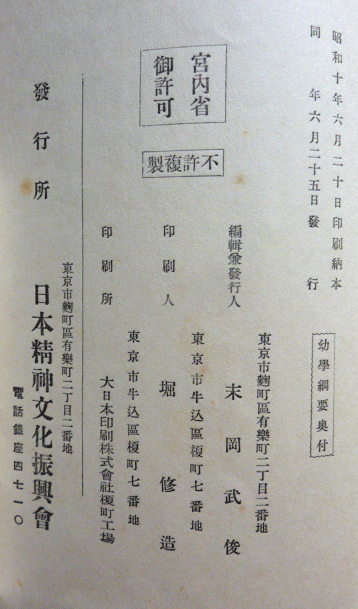 昭和十年六月二十日印刷納本
同年六月二十五日發行
幼學綱要奥付
宮內省
御許可
不許複製
東京市麴町區有樂町二丁目二番地
編輯兼發行人 末岡武俊
東京市牛込區榎町七番地
印刷人 堀修造
東京市牛込區榎町七番地
印刷所 大日本印刷株式會社榎町工場
東京市麴町區有樂町二丁目二番地
發行所 日本精神文化振興會
電話銀座四七一〇